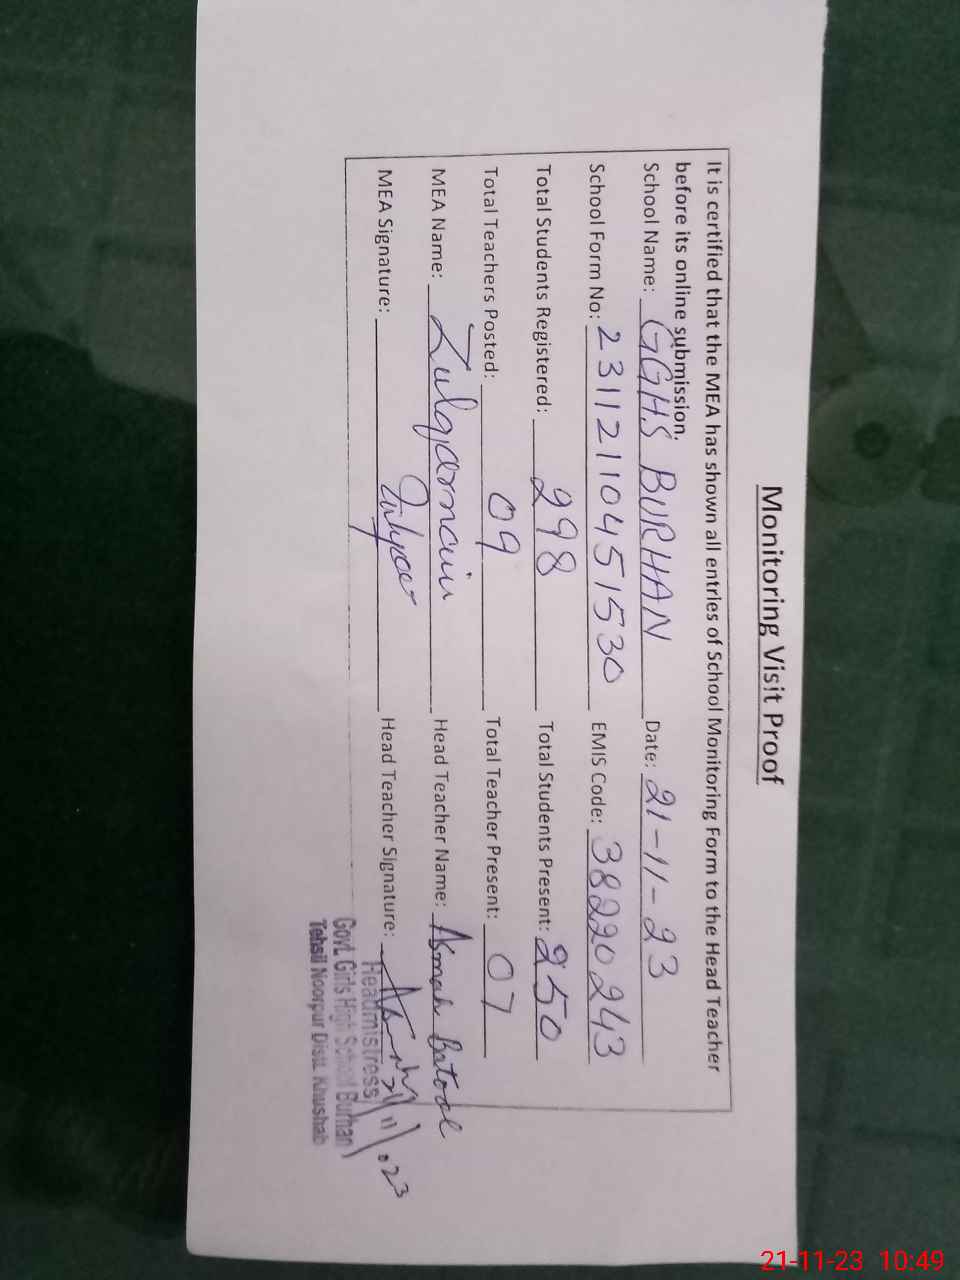 Monitoring Visit Proof
It is certified that the MEA has shown all entries of School Monitoring Form to the Head Teacher
before its online submission.
School Name: GGHS BURHAN Date: 21-11-23
School Form No: 23112110451530 EMIS Code: 38220243
Total Students Registered: 298 Total Students Present: 250
Total Teachers Posted: 09 Total Teacher Present: 07
MEA Name: Zulqarnain Head Teacher Name: Asmah Batool
MEA Signature: Head Teacher Signature:
21/11/.23
Headmistress
Govt. Girls High School Burhan
Tehsil Noorpur Distt. Khushab
21-11-23 10:49